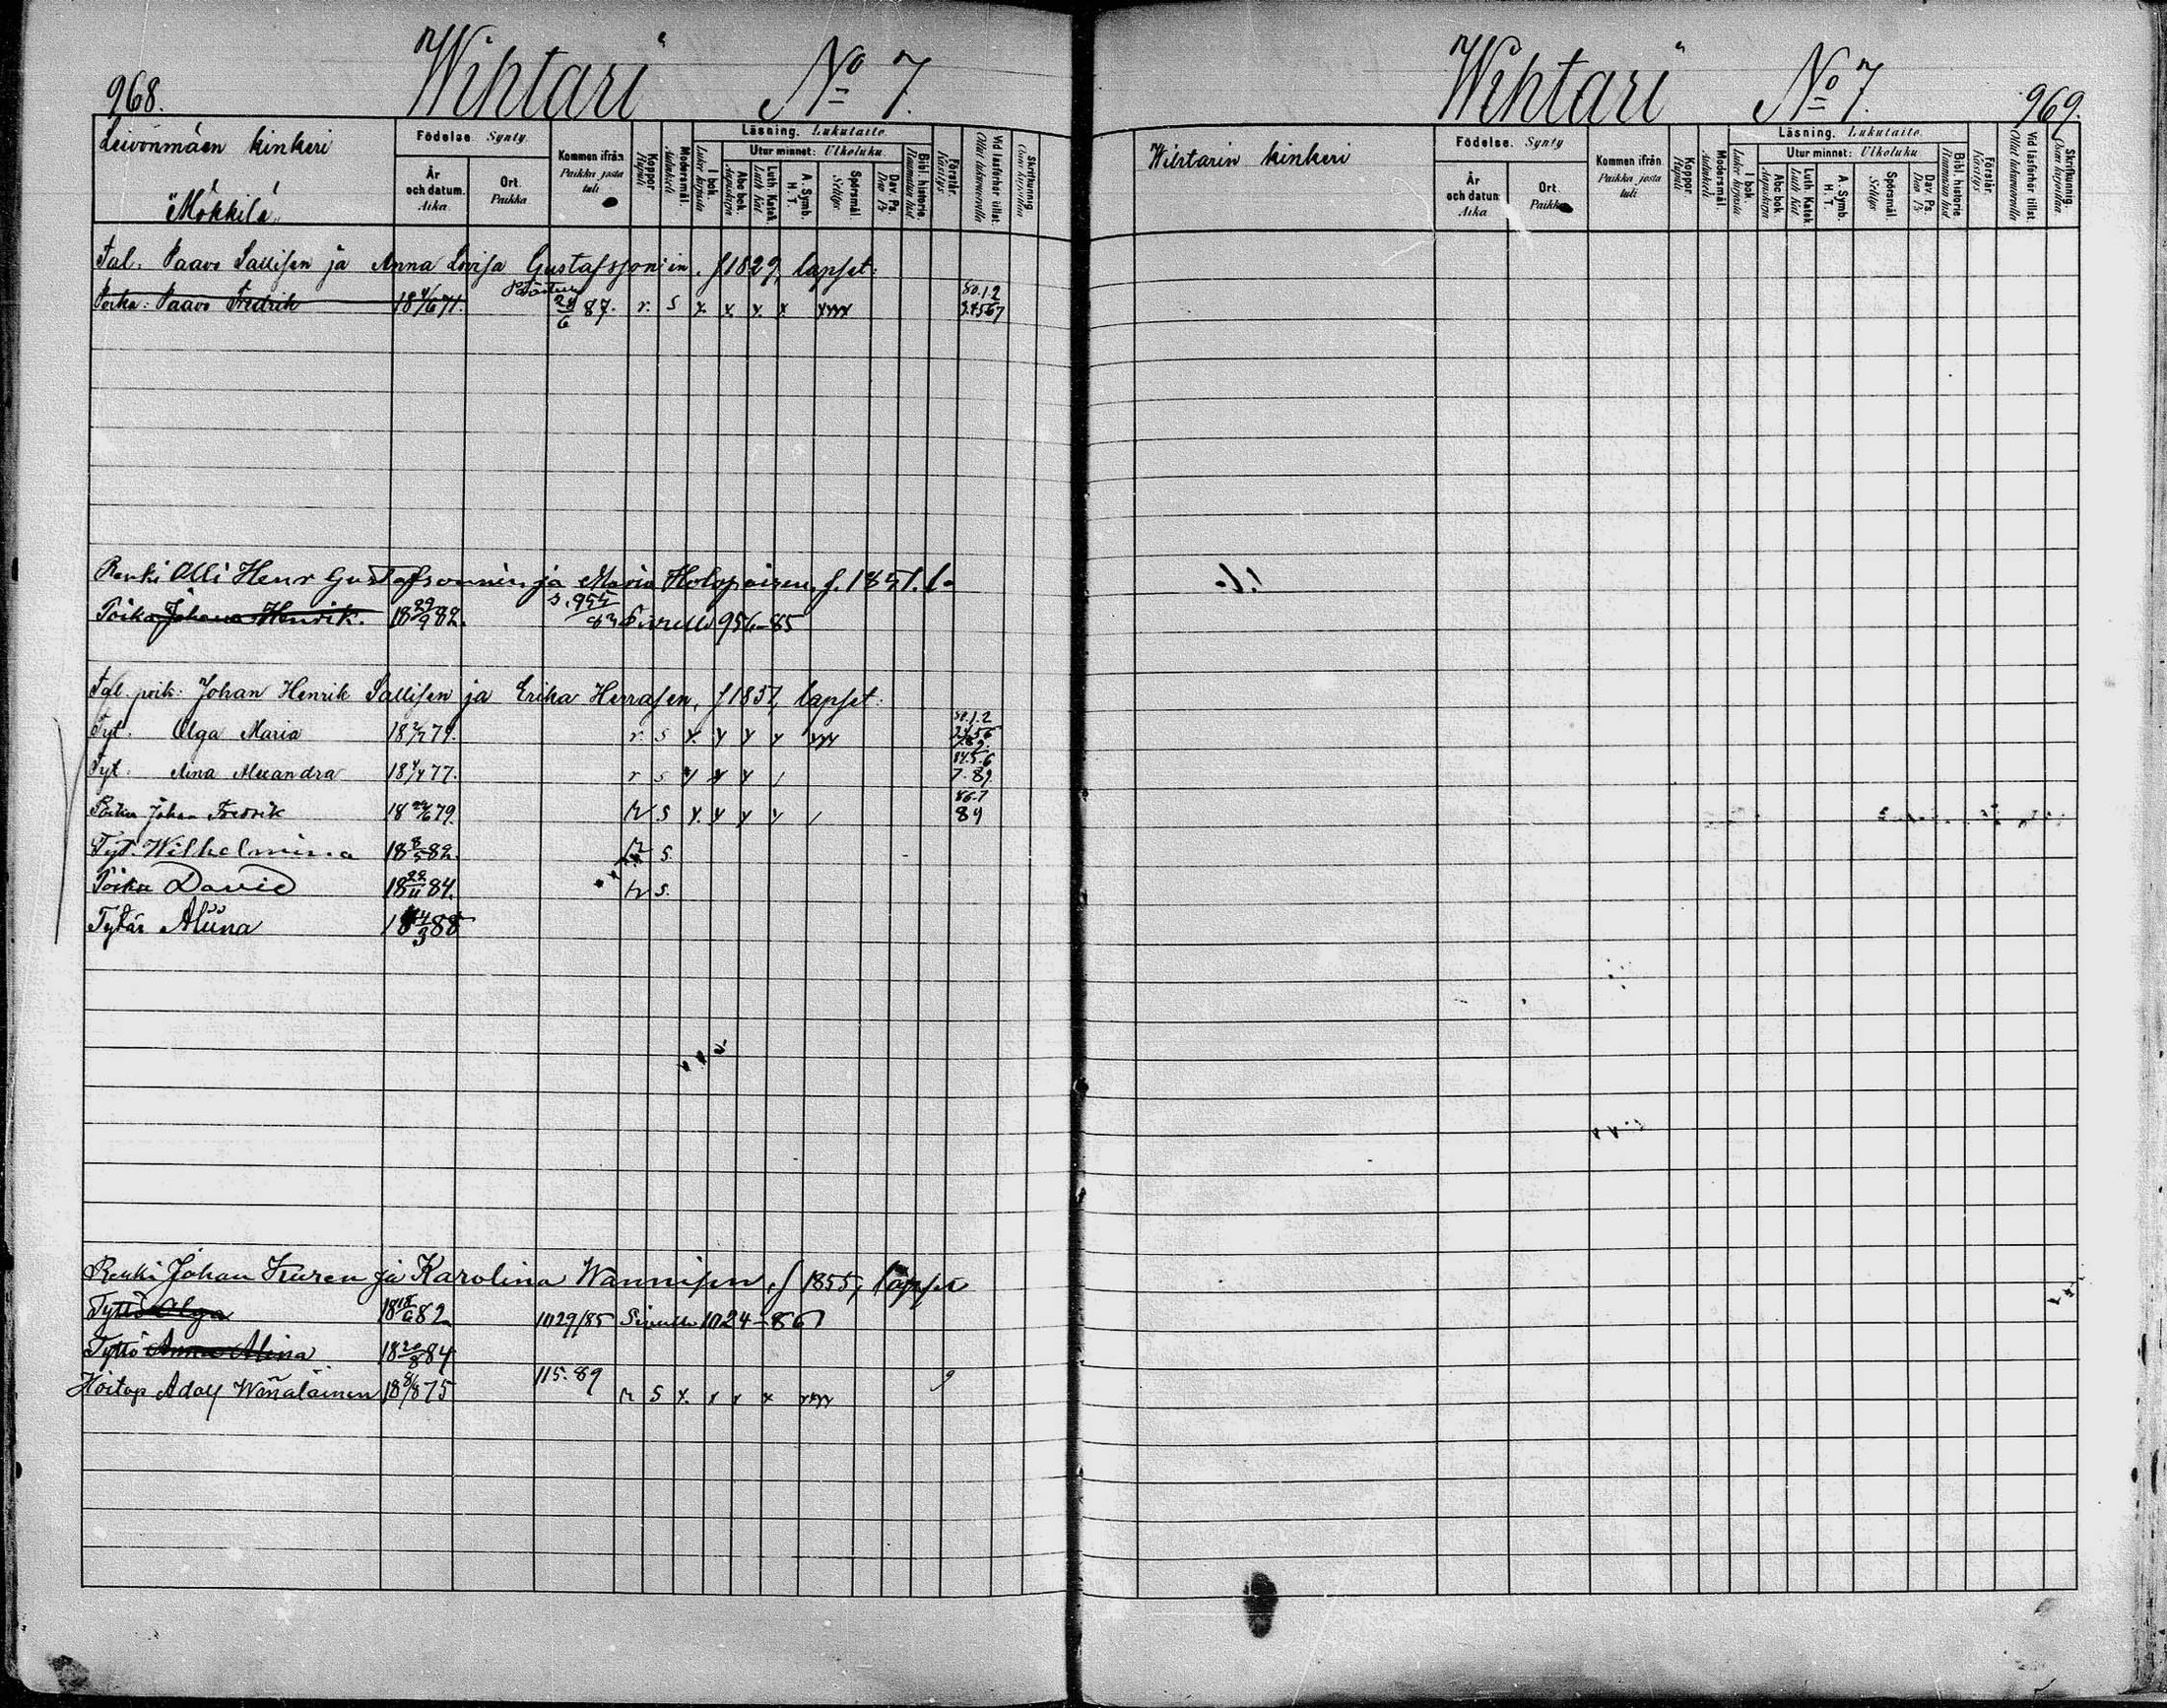 968.
"Wihtari" No 7.
Leivonmäen kinkeri
"Mökkilä"
Födelse. Synty.
År och datum. Aika.
Ort. Paikka
Kommen ifrån. Paikka josta tuli
Koppor Rupuli
Modersmål. Äidinkieli
Läsning. Lukutaito.
I bok. Lukee kirjasta
Utur minnet: Ulkoluku.
Abc bok. Aapiskirja
Luth. Katek. Luth. Kat.
A. Symb. H. T.
Spörsmål. Selitys.
Dav. Ps. Daw. Ps.
Bibl. historie
Förstår. Käsitys.
Vid läsförhör tillst. Ollut lukuvuorolla
Skrifkunnig. Osaa kirjoittaa
Tal. Paavo Sallisen ja Anna Lovisa Gustafssonin, f 1829, lapset:
Poika: Paavo Fredrik 18 4/6 71. 24/6 87. r. s x. x. x. x xxxx 80.1.2 3.4567
Renki Olli Henr Gustafsonnin ja Maria Holopaisen, f. 1851. l.
Poika Johana Henrik. 18 29/9 82. s. 955/83 956-85
Tal. poik: Johan Henrik Sallisen ja Erika Herrasen, f 1857, lapset:
Tyt. Olga Maria 18 2/7 79. r. s x. y y y
Tyt. Aina Alexandra 18 4/4 77. r s y y y / 84.5.6 7.89
Poika Johan Fredrik 79. r s y. y y y / 86.7 89
Tyt. Wilhelmina 18 8/5 82. r s.
Poika David 18 22/11 84. r s.
Tytär Aliina 18 14/3 88
Renki Johan Turen ja Karolina Wannisen, f 1855, lapset
Tyttö Olga 18 18/6 82 1129/85 Sivulle 1124-86
Tyttö Anna Alina 18 20/8 84
Hoitop Adolf Wänäläinen 18 8/8 75 115.89 r s x. x x x xxxx 9
"Wihtari" No 7.
969.
Wihtarin kinkeri
Födelse. Synty
År och datum Aika
Ort. Paikka
Kommen ifrån Paikka josta tuli
Koppor Rupuli
Modersmål. Äidinkieli
Läsning. Lukutaito.
I bok. Lukee kirjasta
Utur minnet: Ulkoluku
Abc bok. Aapiskirja
Luth. Katek. Luth. Kat
A. Symb. H. T.
Spörsmål. Selitys.
Dav. Ps. Daw. Ps
Bibl. historie
Förstår. Käsitys
Vid läsförhör tillst. Ollut lukuvuorolla
Skrifkunnig. Osaa kirjoittaa